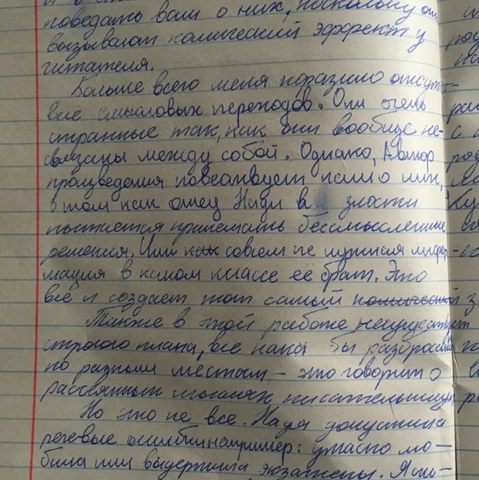 поведать вам о них, поскольку он
вызывают комический эффект у
читателя.
Больше всего меня поразило отсутст-
вие смысловых переходов. Они очень
странные так, как они вообще не-
связаны между собой. Однако, Автор
произведения повествует нам о них,
о том как отец Нади в злости
пытается принемать бессмысленные
решения. Или как совсем не нужная инфор-
мация в каком классе её брат. Это
всё и создает тот самый комический
Также в этой работе несуществует
строгого плана, все как бы разбросано
по разным местам - это говорит о
рассеянных мыслях писательницы
Но это не все. Надя допустила
речевые ошибки например: ужасно лю-
била или выдержила экзамены. Я